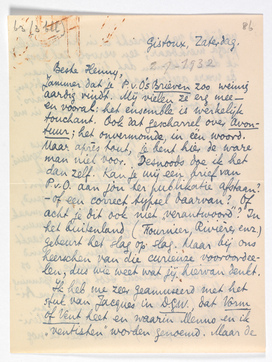 Gistoux, Zaterdag.
2-1-1932
Beste Henny,
Jammer dat je P.v.O's Brieven zoo weinig
aardig vindt. Mij vielen ze erg mee –
en vooral: het ensemble is werkelijk
touchant. Ook dat gescharrel over Avon-
tuur; het onvermonde, in één woord.
Maar après tout, je bent hier de ware
man niet voor. Desnoods doe ik het
dan zelf. Kan je mij een brief van
P.v.O. aan jou ter publikatie afstaan?
– of een correct typsel daarvan? Of
acht je dit ook niet verantwoord? In
het buitenland (Fournier, Rivière enz.)
gebeurt het slag op slag. Maar bij ons
heerschen van die curieuze vooroordee-
len, dus wie weet wat jij hiervan denkt.
Ik heb me zeer geamuseerd met het
stuk van Jacques in D.G.W. dat Vorm
of Vent heet en waarin Menno en ik
"ventisten" worden genoemd. Maar de